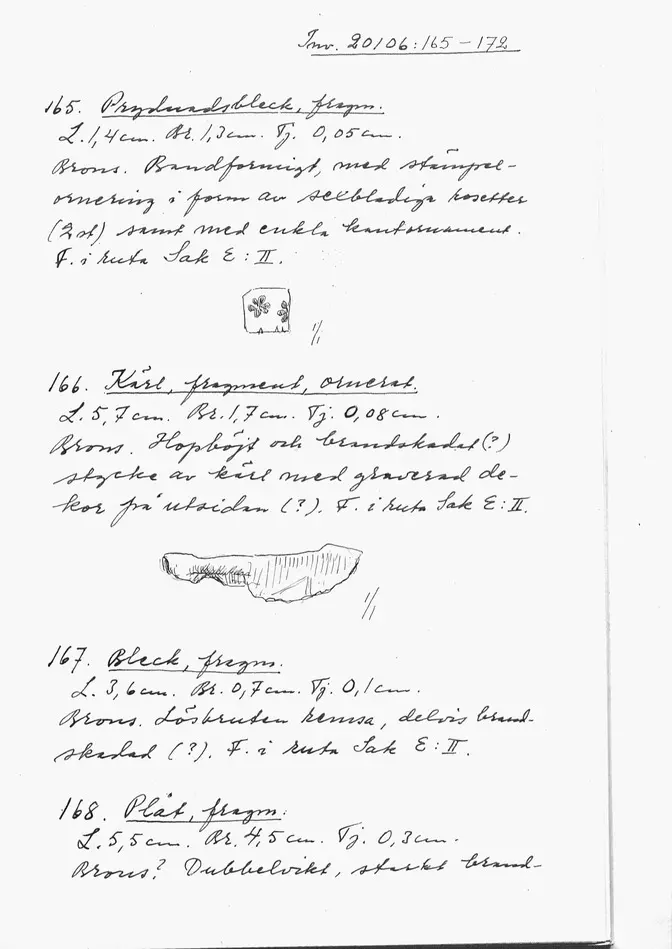 Inv. 20106:165-172
165. Prydnadsbleck, fragm.
L. 1,4 cm. Br. 1,3 cm. Tj. 0,05 cm.
Brons. Bandformigt, med stämpel-
ornering i form av sexbladiga rosetter
(2 st) samt med enkla kantornament.
F. i ruta Sak E:II.
1/1
166. Kärl, fragment, ornerat.
L. 5,7 cm. Br. 1,7 cm. Tj. 0,08 cm.
Brons. Hopböjt och brandskadat (?)
stycke av kärl med graverad de-
kor på utsidan (?). F. i ruta Sak E:II.
1/1
167. Bleck, fragm.
L. 3,6 cm. Br. 0,7 cm. Tj. 0,1 cm.
Brons. Lösbruten remsa, delvis brand-
skadad (?). F. i ruta Sak E:II.
168. Plåt, fragm.
L. 5,5 cm. Br. 4,5 cm. Tj. 0,3 cm.
Brons? Dubbelvikt, starkt brand-